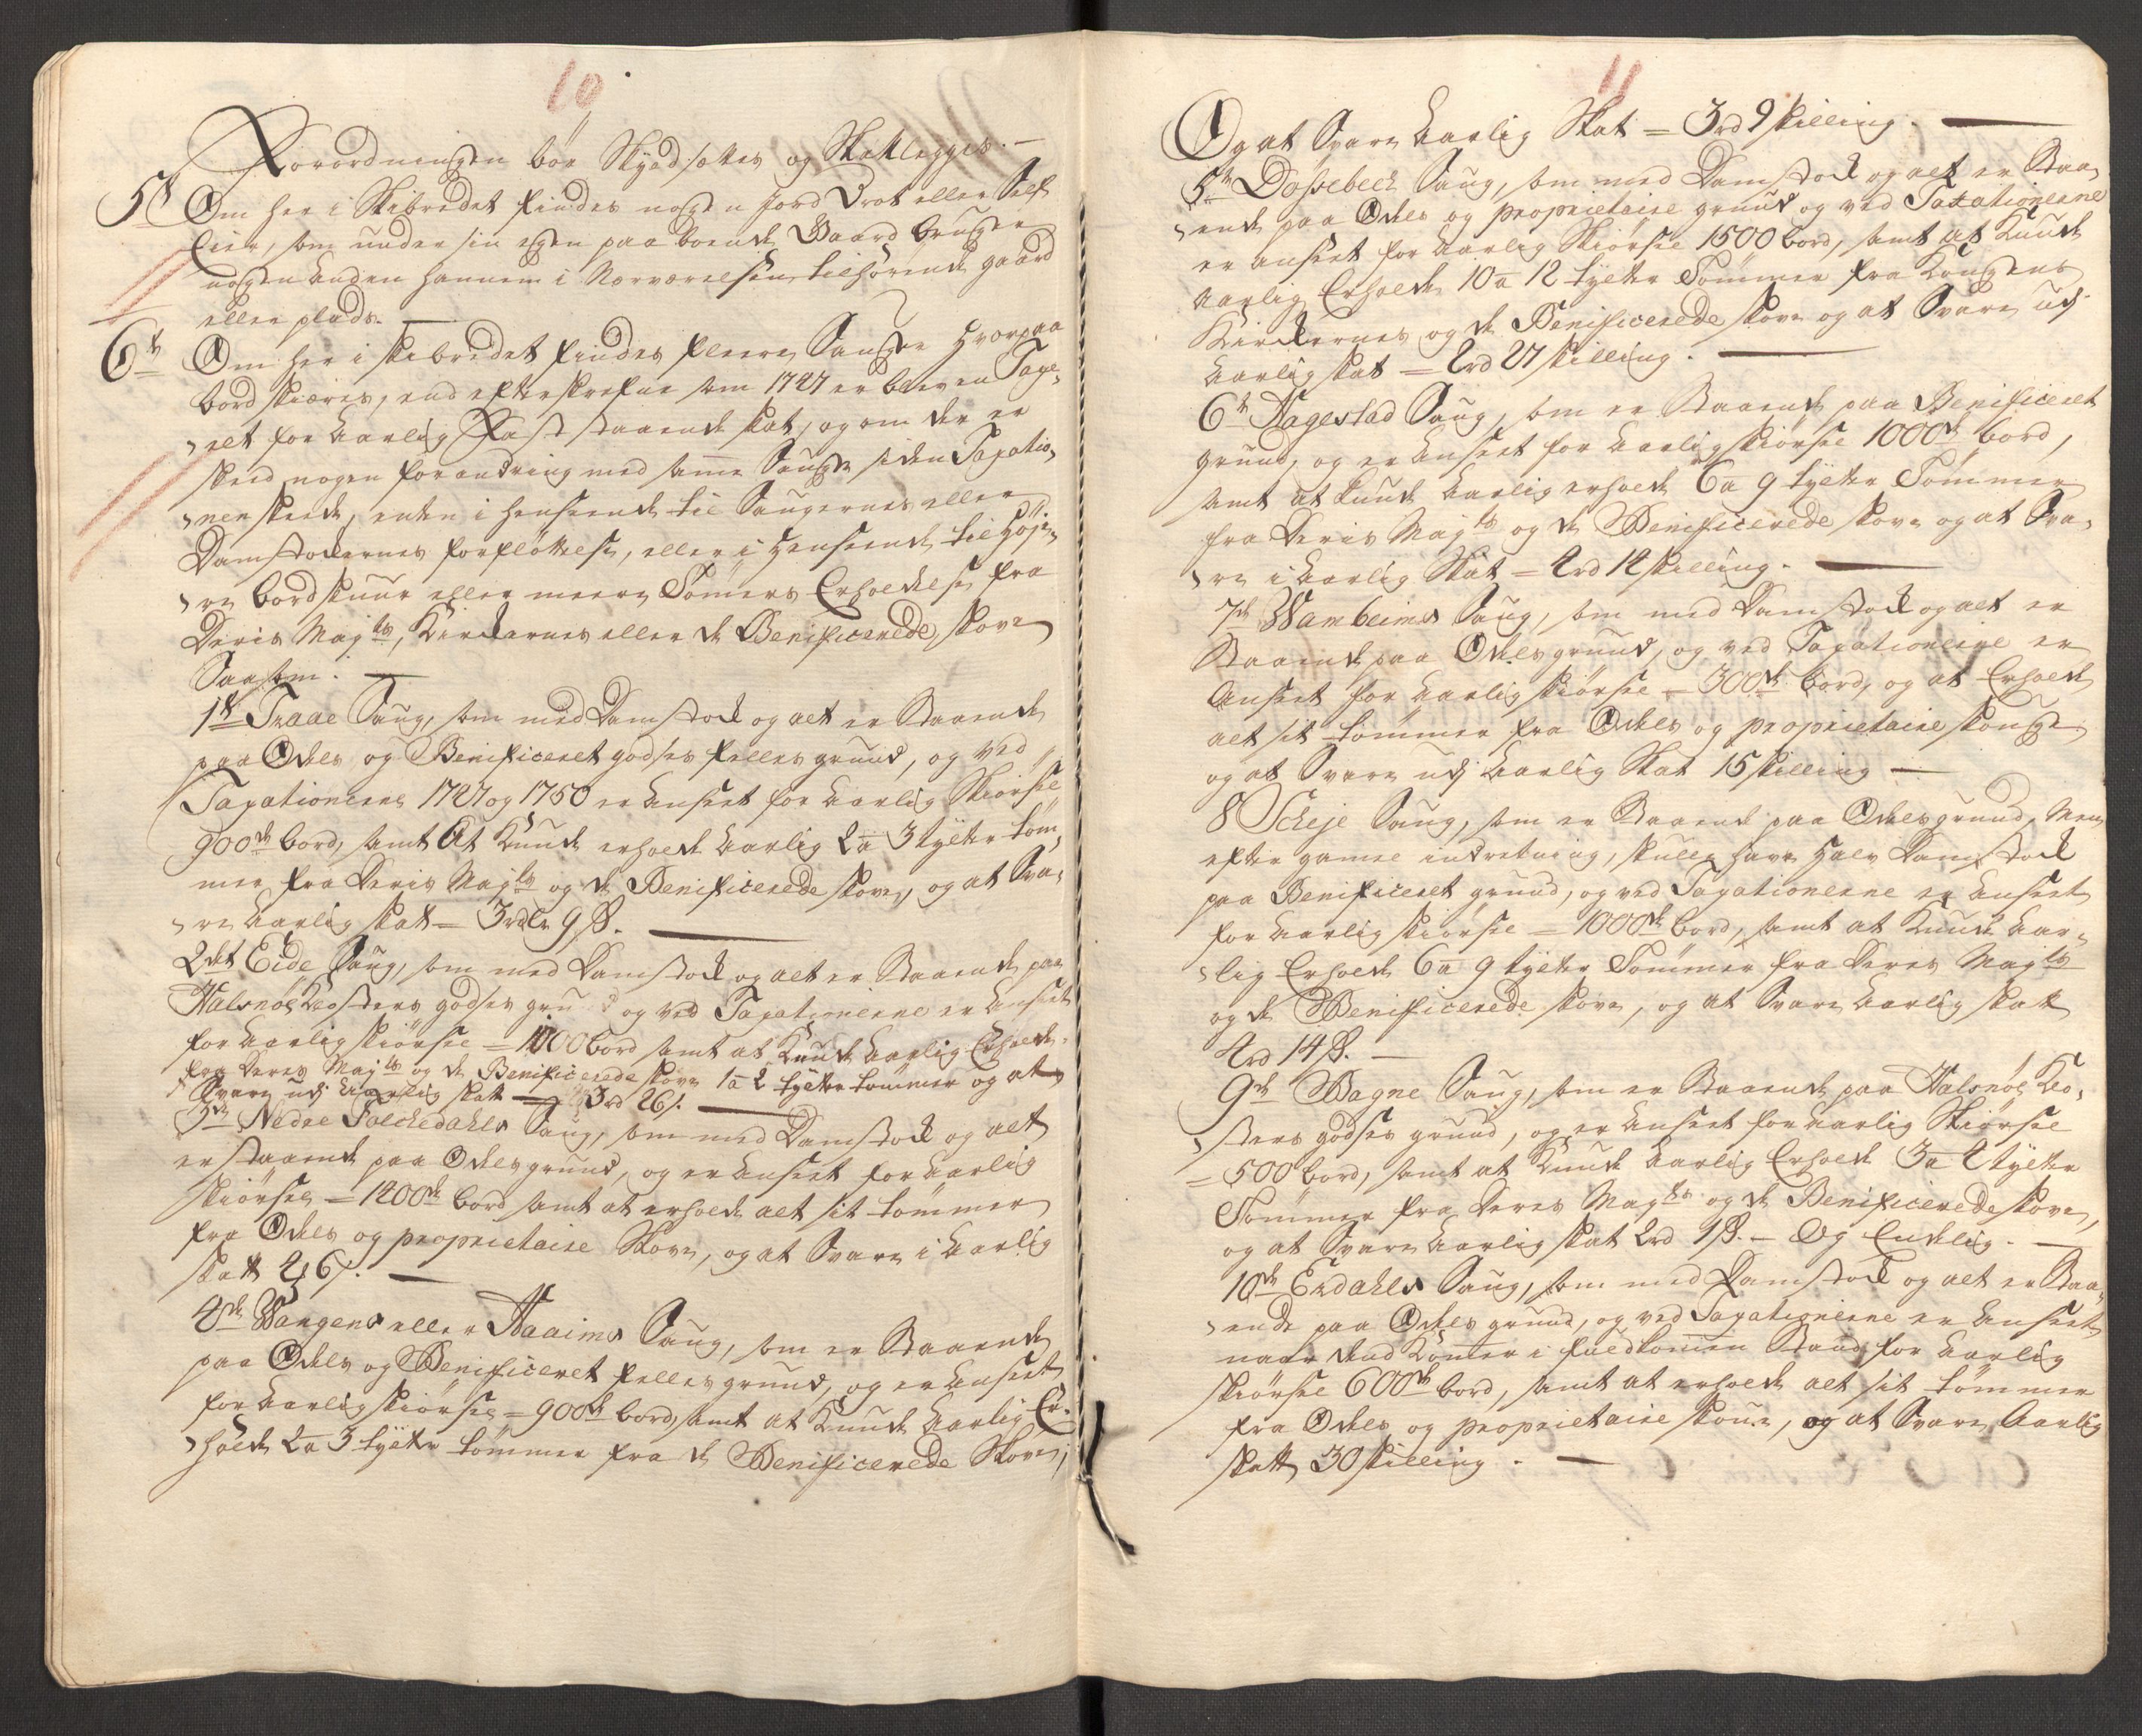 10
Forordningen bør Skydsettes og Skatlegges. —
5t Om her i Skibredet findes nogen Jord Drot eller Self
Eier, som under sin egen paa boende Gaard bruger
nogen anden hannem i Nærværelsen tilhørende gaard
eller plads. —
6t Om her i skibredet findes fleere Sauger hvorpaa
bord skieres, end efterskrefne som 1727 er bleven Taxe-
ret for Aarlig Fast staaende skat, og om der er
skeed nogen forandring med samme Sauger siden Taxatio-
nen skeede, enten i henseende til Saugernes eller
Damstokernes forfløttelse, eller i henseende til Høje-
re bordskuur eller meere Tømers Erholdelse fra
Deris Majts, Kirkernes eller de Benificerede skove
Saasom: —
1t Traae Saug, som med Damstok og alt er Staaende
paa Odels og Benificeret godses felles grund, og ved
Taxationerne 1727 og 1750 er Anseet for Aarlig Skiørsel
900de bord, samt At kunde erholde Aarlig 2 a 3 tylter tøm-
mer fra Deris Majts og de Benificerede skove, og at Sva-
re Aarlig skat = 3rdlr 9 s. —
2det Eide Saug, som med Damstok og alt er Staaende paa
Halsnøe Closters godses grund og ved Taxationerne er Anseet
for Aarlig skiørsel = 1000 bord samt at kunde Aarlig Erholde
fra Deres Majts og de Benificerede skove 1 a 2 tylter tømmer og at
Svare udj Aarlig skat = 3rd 26 s. —
3de Nedre Folckedahls Saug, som med Damstok og alt
er staaende paa Odels grund, og er Anseet for Aarlig
skiørsel = 1400de bord samt at erholde alt sit tømmer
fra Odels og proprietaire Skove, og at Svare i Aarlig
skatt 4 6 s. —
4de Wangens eller Haaims Saug, som er Staaende
paa Odels og Benificeret felles grund, og er Anseet
for Aarlig skiørsel = 900de bord, samt at kunde Aarlig Er-
holde 2 a 3 tylter tømmer fra de Benificerede Skove,
11
Og at Svare Aarlig Skat = 3rd 9 skilling. —
5te Døssebeck Saug, som med Damstok og alt er Staa-
ende paa Odels og proprietaire grund og ved Taxationerne
er anseet for Aarlig Skiørsel 1500 bord, samt at kunde
Aarlig Erholde 10 a 12 tylter Tømmer fra Kongens
Kirkernes og de Benificerede skove og at Svare udj
Aarlig skat = 2rd 27 skilling. —
6te Hagestad Saug, som er Staaende paa Benificeret
grund, og er Anseet for Aarlig skiørsel 1000de bord,
samt at kunde Aarlig erholde 6 a 9 tylter Tømmer
fra Deris Majts og de Benificerede skove og at Sva-
re i Aarlig Skat = 4rd 14 skilling. —
7de Wambeims Saug, som med Damstok og alt er
Staaende paa Odels grund, og ved Taxationerne er
Anseet for Aarlig skiørsel = 300de bord, og at Erholde
alt sit tømmer fra Odels og proprietaire skouge
og at Svare udj Aarlig Skat 15 skilling —
8 Scheje Saug, som er Staaende paa Odels grund, Men
efter gamel indretning, skulle have halv Damstok
paa Benificeret grund, og ved Taxationerne er Anseet
for Aarlig skiørsel = 1000de bord, samt at kunde Aar-
lig Erholde 6 a 9 tylter Tømmer fra Deres Majts
og de Benificerede skove, og at Svare Aarlig skatt
4rd 14 s. —
9de Bagne Saug, som er Staaende paa Halsnøe Clo-
sters godses grund, og er Anseet for Aarlig Skiørsel
= 500 bord, samt at kunde Aarlig Erholde 3 a 4 tylter
Tømmer fra Deres Majts og de Benificerede skove,
og at Svare Aarlig skat 2rd 1 s. — Og Endelig. —
10de Erdahls Saug, som med Damstok og alt er Staa-
ende paa Odels grund, og ved Taxationerne er Anseet
naar dend kommer i fuldkommen Stand for Aarlig
skiørsel 600de bord, samt at erholde alt sit tømmer
fra Odels og proprietaire skove, og at Svare Aarlig
skatt 30 skilling. —